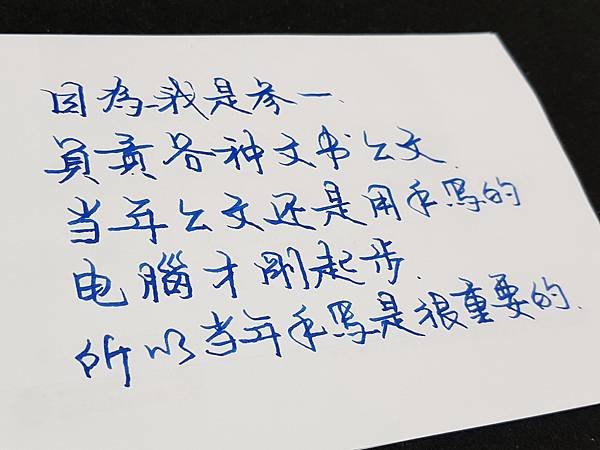 因為我是参一.
負責各种文书公文.
当年公文还是用手写的
电腦才剛起步.
所以当年手写是很重要的.